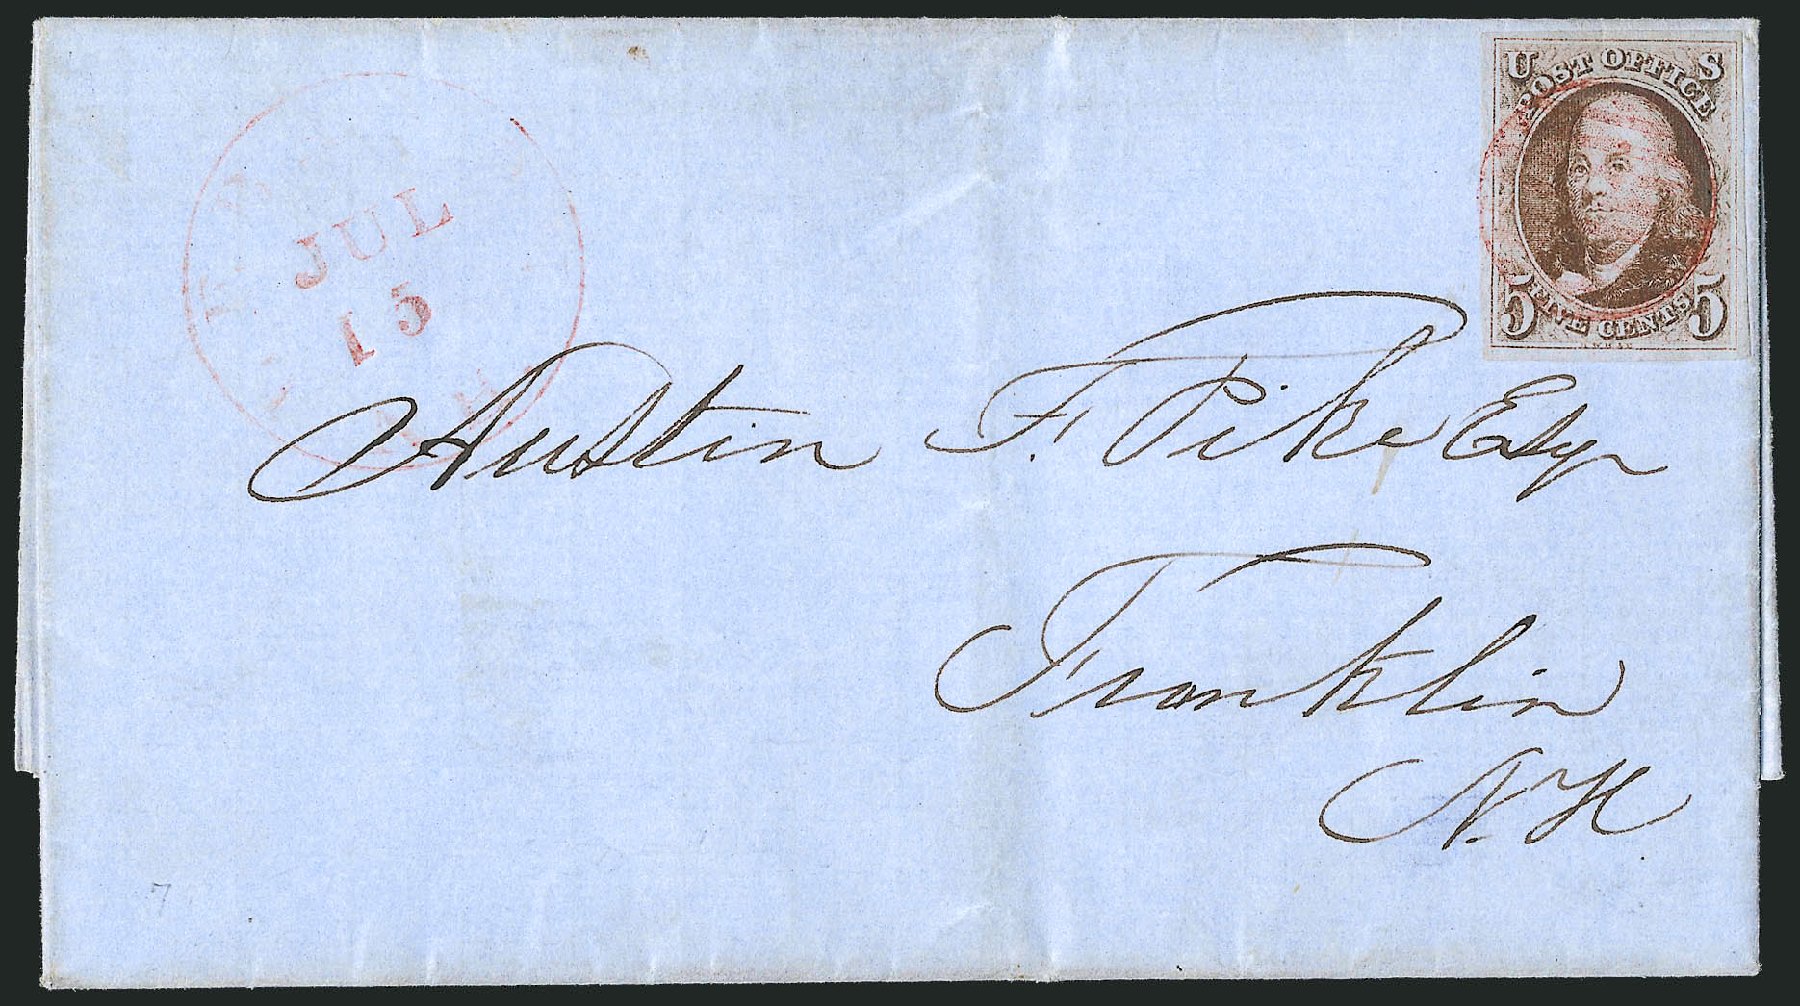 U S
POST OFFICE
5 FIVE CENTS 5
JUL
15
Austin F. Pike Esqr
Franklin
N.H
7